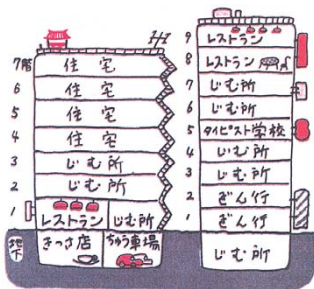 7階 住宅
6 住宅
5 住宅
4 住宅
3 じむ所
2 じむ所
1 レストラン じむ所
地下 きっさ店 ちゅう車場
9 レストラン
8 レストラン
7 じむ所
6 じむ所
5 タイピスト学校
4 じむ所
3 じむ所
2 ぎん行
1 ぎん行
じむ所